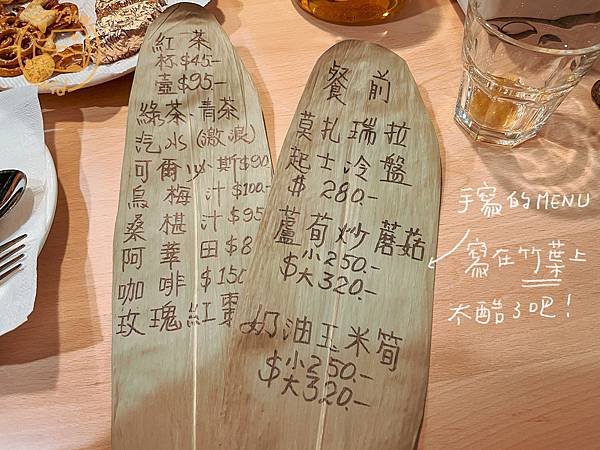 紅茶
杯$45-
壺$95-
綠茶、青茶
汽水(激浪)
可爾必斯$90
烏梅汁$100-
桑椹汁$95
阿華田$8
咖啡$150
玫瑰紅棗
餐前
莫扎瑞拉
起士冷盤
$280.-
蘆荀炒蘑菇
$小250.-
$大320.-
奶油玉米筍
$小250.-
$大320.-
手寫的MENU
寫在竹葉上
太酷了吧!